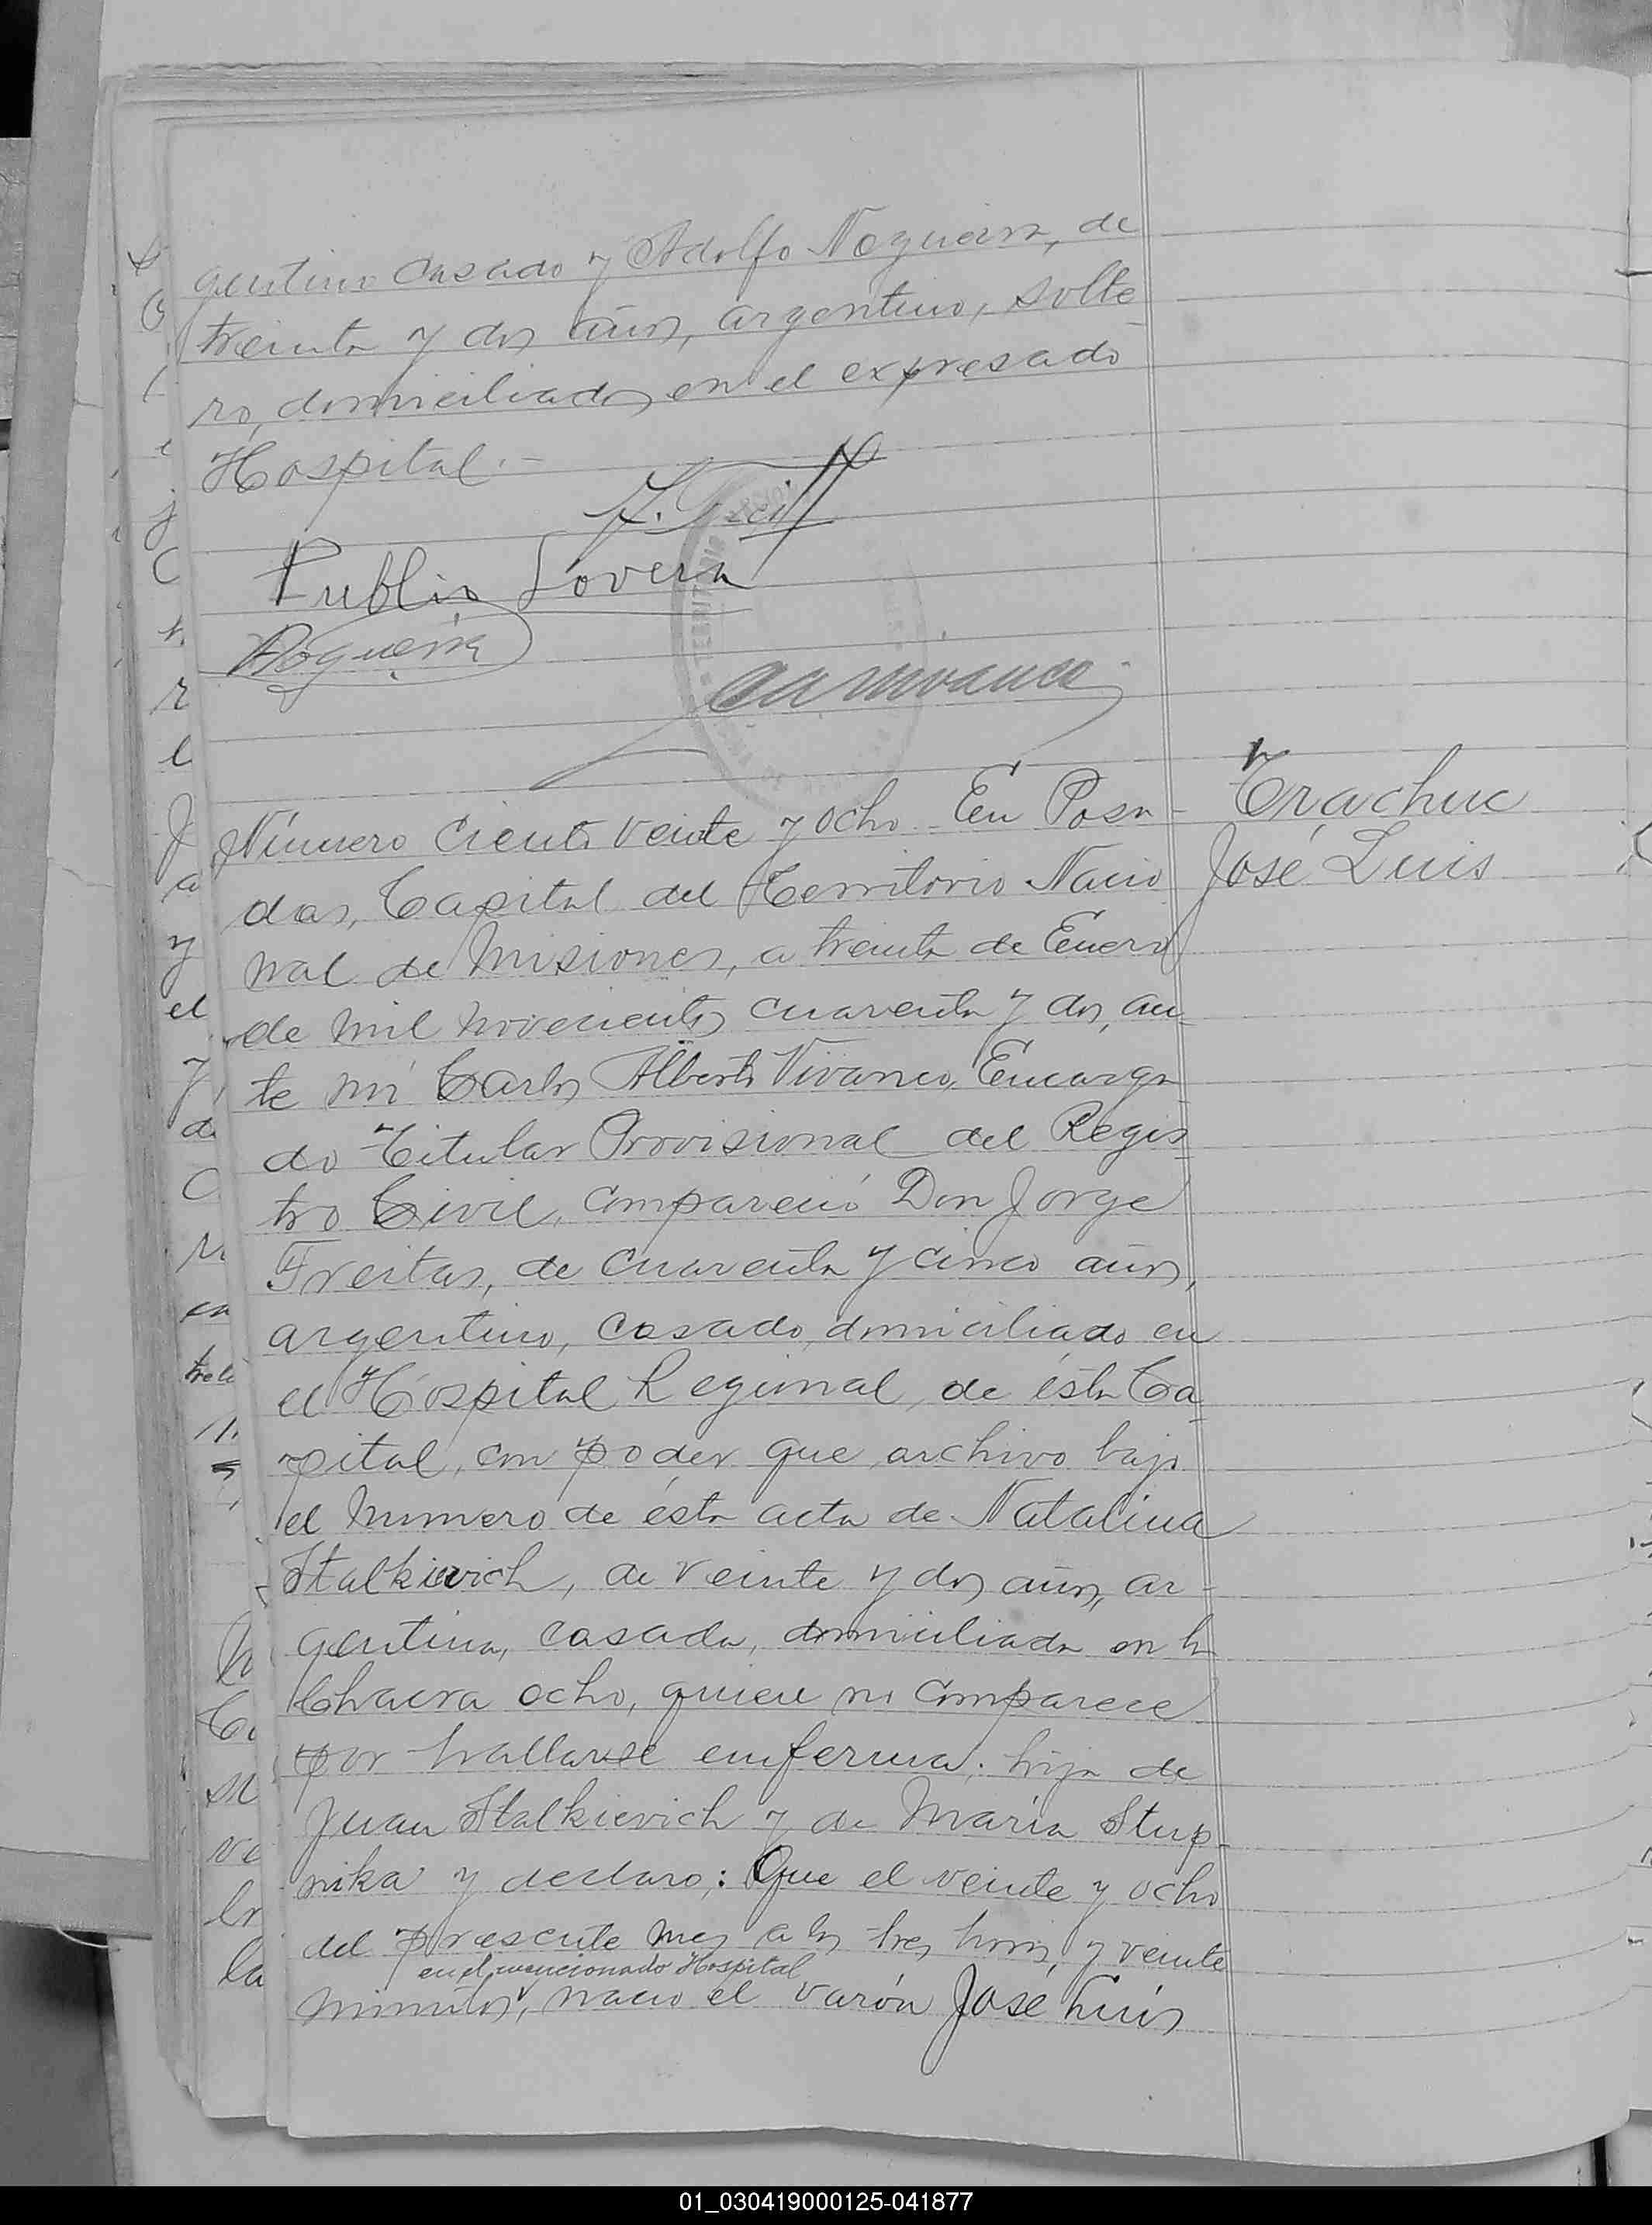 gentino casado y Adolfo Nogueira, de
treinta y dos años, argentino, solte
ro, domiciliados en el expresado
Hospital.-
Publio Lovera
Nogueira
Número Ciento veinte y ocho. En Posa-
das, Capital del Territorio Nacio
nal de Misiones, a treinta de Enero
de mil novecientos cuarenta y dos, an
te mí Carlos Alberto Vivanco, Encarga
do Titular Provisional del Regis
tro Civil, compareció Don Jorge
Freitas, de cuarenta y cinco años,
argentino, casado, domiciliado en
el Hospital Regional, de ésta Ca-
pital, con poder que archivo bajo
el número de ésta acta de Natalina
Stalkievich, de veinte y dos años, ar-
gentina, casada, domiciliada en la
Chacra ocho, quien no comparece
por hallarse enferma: hija de
Juan Stalkievich y de María Stup-
nika y declaro: Que el veinte y ocho
del presente mes a las tres horas y veinte
en el mencionado Hospital
minutos, nació el varón José Luis
Trachuc
José Luis
01_030419000125-041877